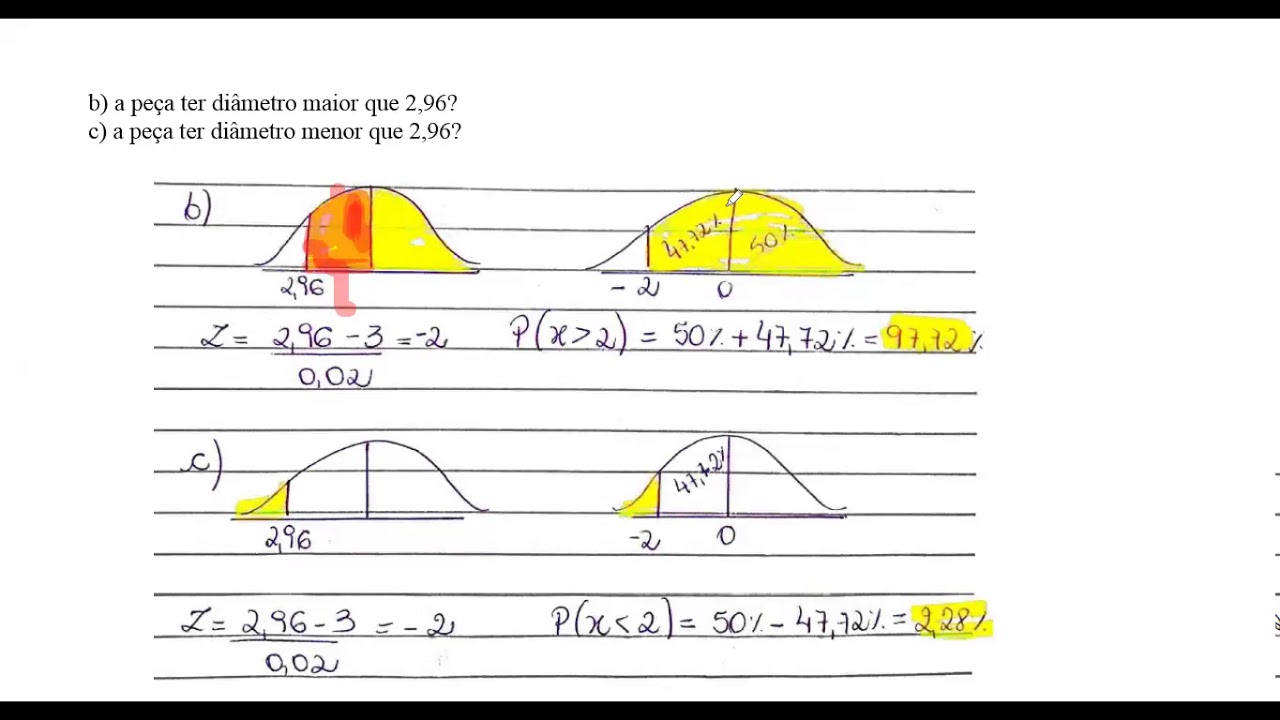 b) a peça ter diâmetro maior que 2,96?
c) a peça ter diâmetro menor que 2,96?
b)
47,72% 50%
2,96 -2 0
Z = 2,96 - 3 = -2 P(x > 2) = 50% + 47,72% = 97,72%
0,02
c)
47,72%
2,96 -2 0
Z = 2,96 - 3 = -2 P(x < 2) = 50% - 47,72% = 2,28%
0,02